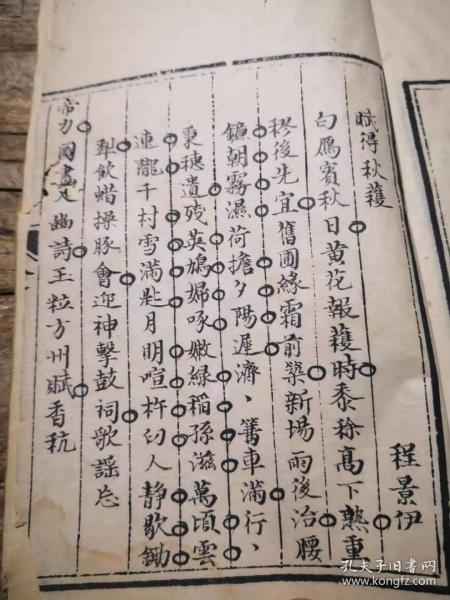 賦得秋穫
程景伊
白鴈賓秋日黃花報穫時黍稌高下熟重
穋後先宜舊圃緣霜前築新場雨後治腰
鐮朝霧濕荷擔夕陽遲濟〻篝車滿行〻
秉穗遺殘英鳩婦啄嫩綠稻孫滋萬頃雲
連隴千村雪滿匙月明喧杵臼人靜歇鋤
犁飲蜡操豚會迎神擊鼓祠歌謠忘
帝力圖畫入豳詩玉粒方州賦香秔
孔夫子旧书网
www.kongfz.com